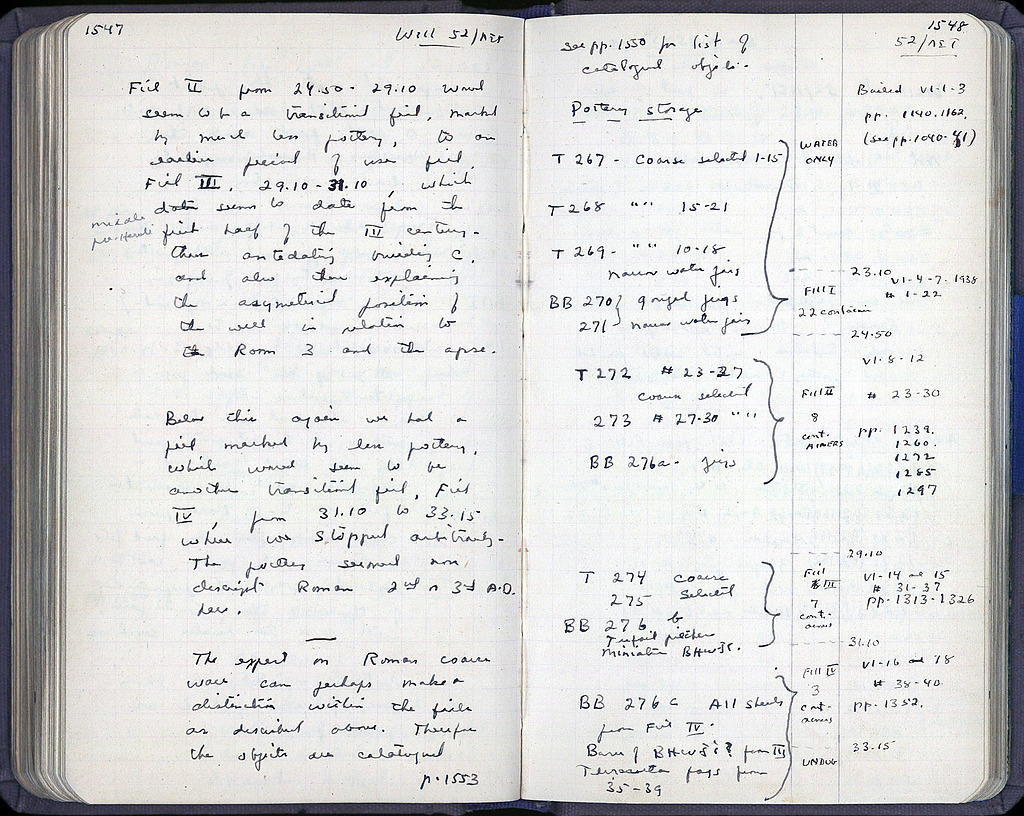 1547
Well 52/ΛΕΤ
Fill II from 24.50 - 29.10 would
seem to be a transitional fill, marked
by much less pottery, to an
earlier period of use fill.
Fill III, 29.10 - 31.10, which
seems to date from the
middle
first half of the III century.
thus antedating building C,
and also thus explaining
the asymetrical position of
the well in relation to
Room 3 and the apse.
Below this again we had a
fill marked by less pottery,
which would seem to be
another transitional fill, Fill
IV, from 31.10 to 33.15
where we stopped arbitrarily.
The pottery seemed non
descript Roman 2nd or 3rd A.D.
here.
The expert on Roman coarse
ware can perhaps make a
distinction within the fills
as described above. Therefore
the objects are catalogued
p. 1553
1548
52/ΛΕΤ
See pp. 1550 for list of
catalogued objects.
Pottery storage
T 267 - Coarse selected 1-15
T 268 "" 15-21
T 269 - "" 10-18
narrow water jars
BB 270 } gouged jugs
271 } narrow water jars
T 272 # 23-27
coarse selected
273 # 27-30 ""
BB 276a - jugs
T 274 coarse
275 selected
BB 276 b
Trefoil pitcher
miniature
BB 276 c All sherds
from Fill IV.
from III
Terracotta from
35-39
WATER
ONLY
23.10
Fill I
22 containers
24.50
Fill II
8
cont-
ainers
29.10
Fill
III
7
cont-
ainers
31.10
Fill IV
3
cont-
ainers
33.15
UNDUG
Bailed VI-1-3
pp. 1140, 1162,
(see pp. 1040-41)
VI-4-7. 1938
# 1-22
VI-8-12
# 23-30
pp. 1239.
1260.
1272
1285
1297
VI-14 and 15
# 31-37
pp. 1313-1326
VI-16 and 18
# 38-40
pp. 1352.